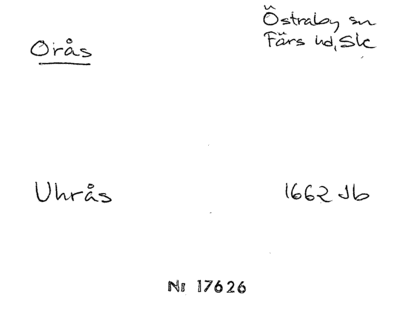 Orås
Östraby sn
Färs hd, Sk
Uhrås
1662 Jb
Nr 17626